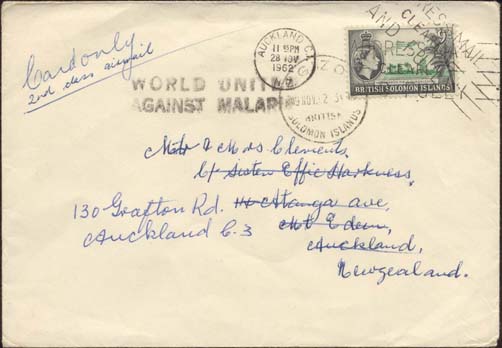 Card only
2nd class airmail
AUCKLAND C.1
11 30 PM
28 NOV
1962
N.Z.
WORLD UNITED
AGAINST MALARIA
GIZO
19 NOV 62
BRITISH
SOLOMON ISLANDS
BRITISH SOLOMON ISLANDS
Mr & Mrs Clements.
C/- Sister Effie Harkness,
130 Grafton Rd. Atanga ave,
Auckland C.3 Mt Eden,
Auckland,
Newzealand.